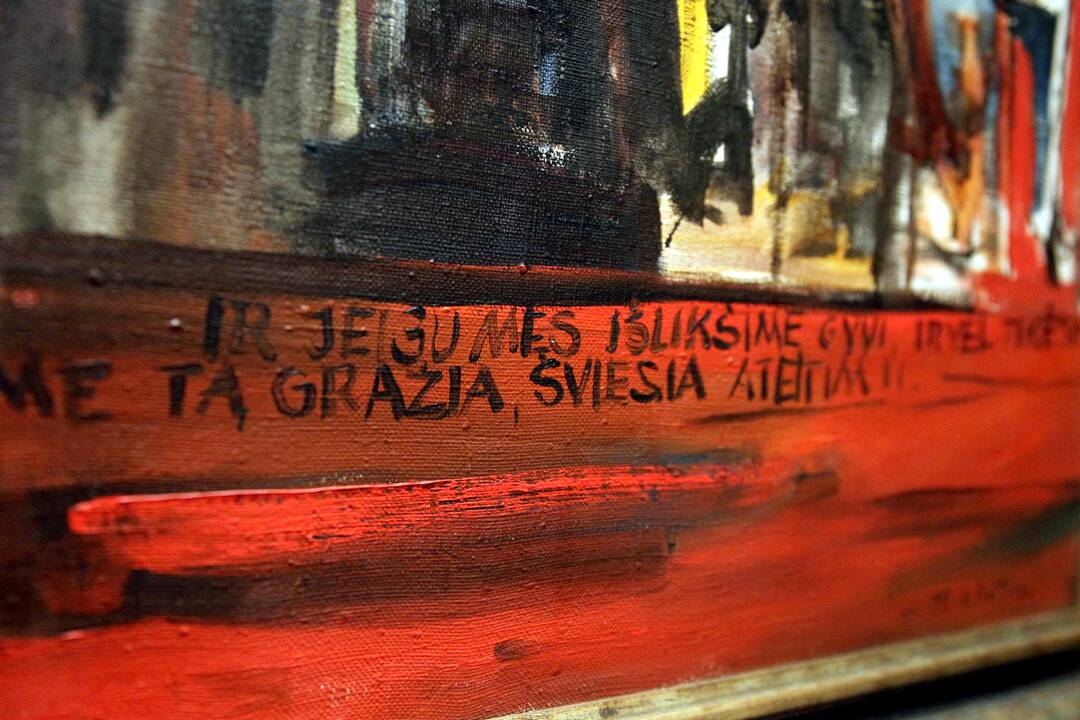 IR JEIGU MES IŠLIKSIME GYVI, IR VĖL
ME TĄ GRAŽIĄ, ŠVIESIĄ ATEITIM !!